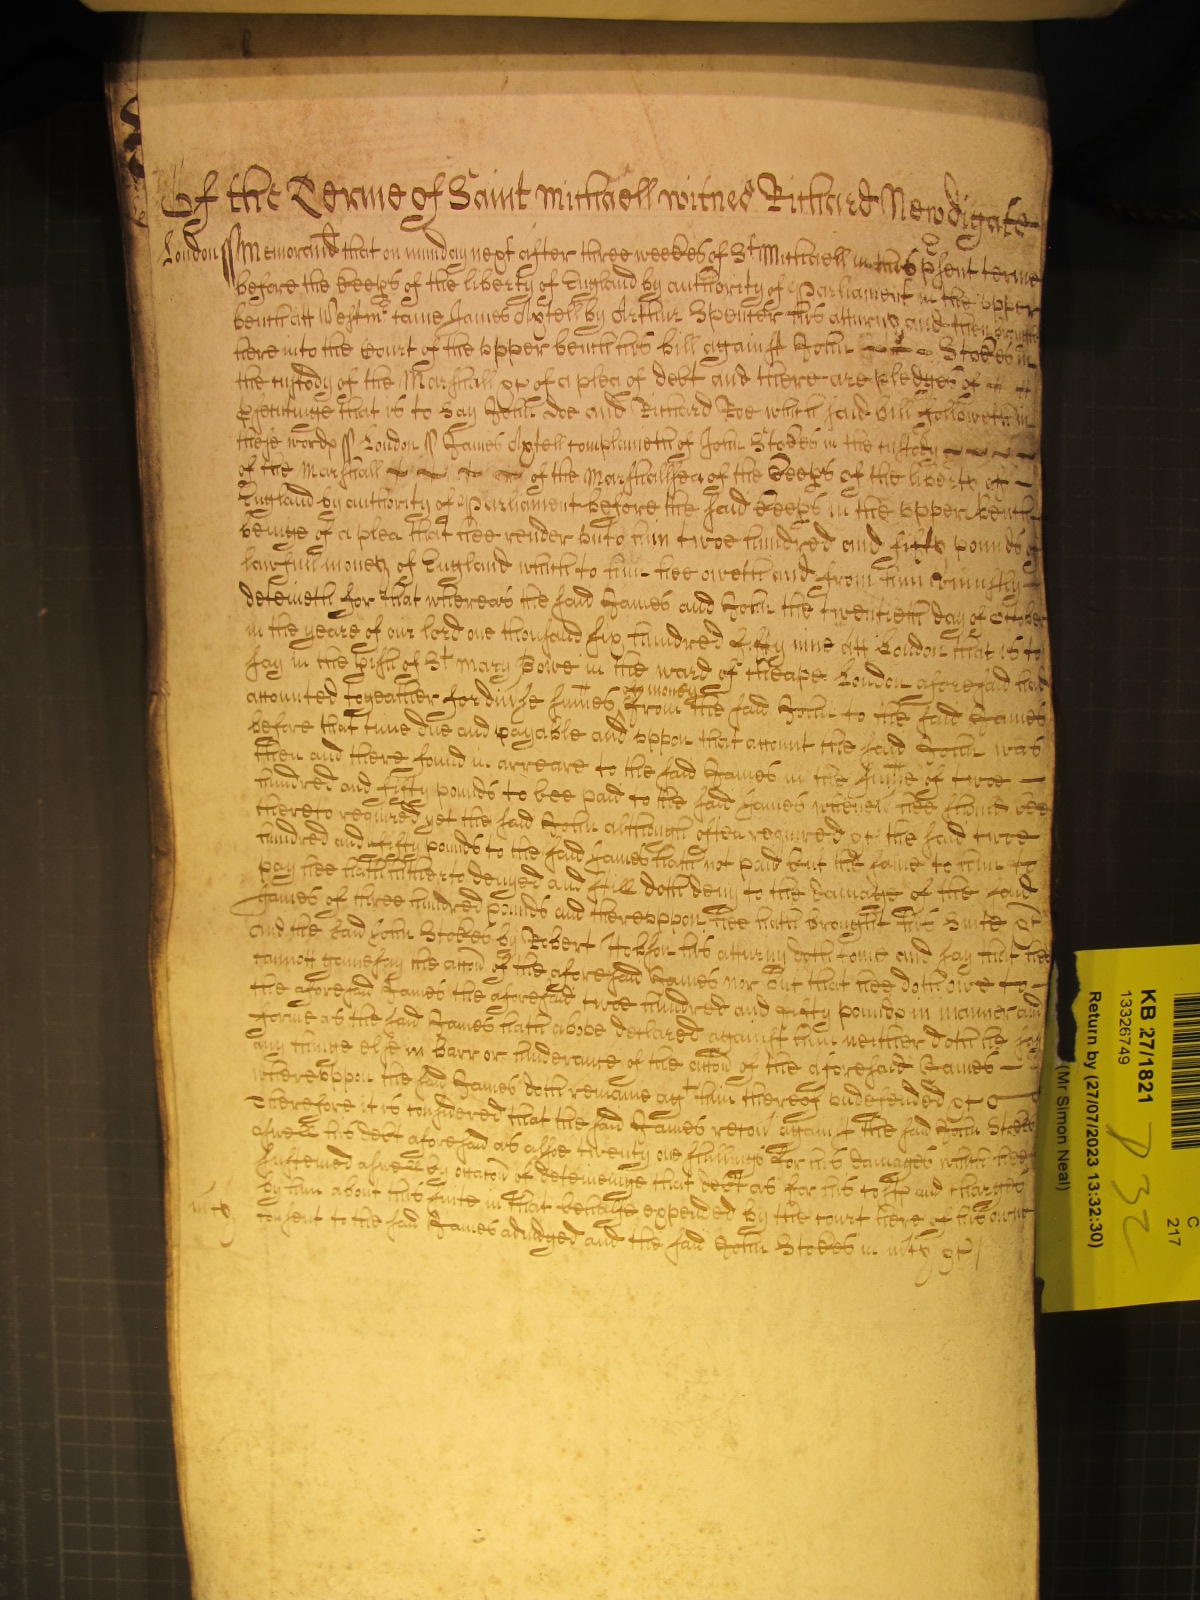 Of the Terme of Saint Michaell witnes Richard Newdigate
London ss Memorand that on munday next after three weekes of St Michaell in this psent terme
before the keeps of the liberty of England by authority of Parliament in the upper
bench att Westmr came James Axtell by Arthur Spencer his atturny and then brought
here into the Court of the upper bench his bill against John Stokes in
the custody of the Marshall &c of a plea of debt and there are pledges of
psecutinge that is to say John Doe and Richard Roe which said bill followeth in
these words ss London ss James Axtell complaineth of John Stokes in the custody
of the Marshall of the Marshallsea of the keeps of the liberty of
England by authority of Parliament before the said keeps in the upper bench
beinge of a plea that hee render unto him twoe hundred and fifty pounds of
lawfull money of England which to him hee oweth and from him uniustly
deteineth For that whereas the said James and John the twentieth day of October
in the yeare of our lord one thousand six hundred fifty nine att London that is to
say in the pish of St Mary Bowe in the ward of Cheape London aforesaid had
accounted togeather for divse sumes of money from the said John to the said James
before that time due and payable and uppon that account the said John was
then and there found in arreare to the said James in the sume of twoe
hundred and fifty pounds to bee paid to the said James when hee should bee
thereto required yet the said John although often required &c the said twoe
hundred and fifty pounds to the said James hath not paid but the same to him to
pay hee hath hitherto denyed and still doth deny to the damage of the said
James of three hundred pounds and thereuppon hee hath brought this suite &c
And the said John Stokes by Robert Hobson his atturny doth come and say that hee
cannott gainesay the accon of the aforesaid James nor but that hee doth owe to
the aforesaid James the aforesaid twoe hundred and fifty pounds in manner and
forme as the said James hath above declared against him neither doth he say
any thinge else in barr or hinderance of the accon of the aforesaid James
whereuppon the said James doth remaine agt him thereof undefended &c
Therefore it is considered that the said James recov against the said John Stokes
aswell his debt aforesaid as alsoe twenty one shillings for his damages which hee
susteined aswell by occacon of deteininge that debt as for his costs and charges
by him about his suite in that behalfe expended by the court here of his owne
consent to the said James adiudged and the said John Stokes in mcy &c
in mcy
KB 27/1821
13326749
Return by (27/07/2023 13:32:30)
(Mr Simon Neal)
C
217